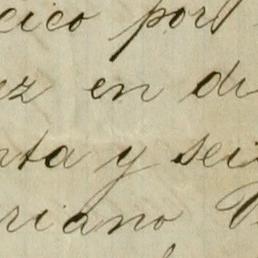 cico por
ez en di
nta y seis
riano